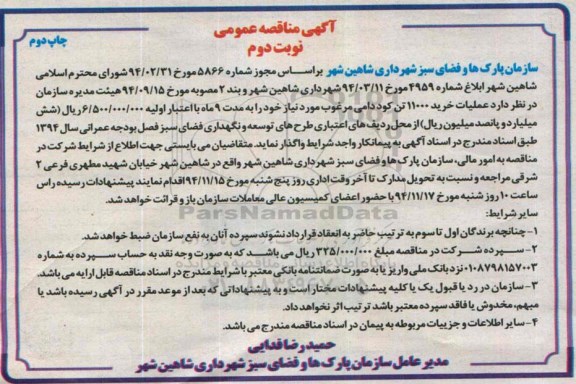 آگهی مناقصه عمومی
نوبت دوم
چاپ دوم
سازمان پارک ها و فضای سبز شهرداری شاهین شهر براساس مجوز شماره ۵۸۶۶ مورخ ۹۴/۰۲/۳۱ شورای محترم اسلامی
شاهین شهر ابلاغ شماره ۴۹۵۹ مورخ ۹۴/۰۳/۱۱ شهرداری شاهین شهر و بند ۲ مصوبه مورخ ۹۴/۰۹/۱۵ هیئت مدیره سازمان
در نظر دارد عملیات خرید ۱۱۰۰۰ تن کود دامی مرغوب مورد نیاز خود را به مدت ۹ ماه با اعتبار اولیه ۶/۵۰۰/۰۰۰/۰۰۰ ریال (شش
میلیارد و پانصد میلیون ریال) از محل ردیف های اعتباری طرح های توسعه و نگهداری فضای سبز فصل بودجه عمرانی سال ۱۳۹۴
طبق اسناد مندرج در اسناد آگهی به پیمانکار واجد شرایط واگذار نماید. متقاضیان می بایستی جهت اطلاع از شرایط شرکت در
مناقصه به امور مالی، سازمان پارک ها و فضای سبز شهرداری شاهین شهر واقع در شاهین شهر خیابان شهید مطهری فرعی ۲
شرقی مراجعه و نسبت به تحویل مدارک تا آخر وقت اداری روز پنج شنبه مورخ ۹۴/۱۱/۱۵ اقدام نمایند پیشنهادات رسیده راس
ساعت ۱۰ روز شنبه مورخ ۹۴/۱۱/۱۷ با حضور اعضای کمیسیون عالی معاملات سازمان باز و قرائت خواهد شد.
سایر شرایط:
۱- چنانچه برندگان اول تا سوم به ترتیب حاضر به انعقاد قرارداد نشوند سپرده آنان به نفع سازمان ضبط خواهد شد.
۲- سپرده شرکت در مناقصه مبلغ ۳۲۵/۰۰۰/۰۰۰ ریال می باشد که به صورت وجه نقد به حساب سپرده به شماره
۰۱۰۸۷۹۸۱۵۷۰۰۳ نزد بانک ملی واریز یا به صورت ضمانتنامه بانکی معتبر با شرایط مندرج در اسناد مناقصه قابل ارایه می باشد.
۳- سازمان در رد یا قبول یک یا کلیه پیشنهادات مختار است و به پیشنهاداتی که بعد از موعد مقرر در آگهی رسیده باشد یا
مبهم، مخدوش یا فاقد سپرده معتبر باشد ترتیب اثر نخواهد داد.
۴- سایر اطلاعات و جزییات مربوطه به پیمان در اسناد مناقصه مندرج می باشد.
حمیدرضا فدایی
مدیر عامل سازمان پارک ها و فضای سبز شهرداری شاهین شهر
ParsNamadData